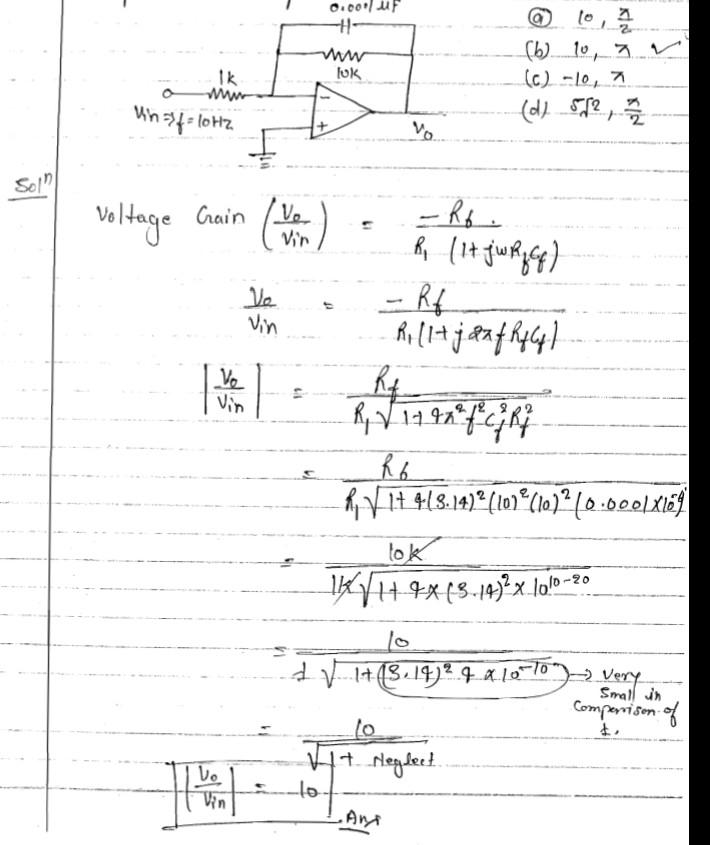 0.001μF
(a) 10, π/2
(b) 10, π ✓
(c) -10, π
(d) 5√2, π/2
10k
1k
-
+
Vin ⇒ f = 10Hz
Vo
Solⁿ
Voltage Gain (Vo/Vin) = -Rf / R1 (1 + jωRfCf)
Vo/Vin = -Rf / R1 (1 + j2πf RfCf)
|Vo/Vin| = Rf / R1 √(1 + 4π²f²Cf²Rf²)
= Rf / R1 √(1 + 4(3.14)²(10)²(10)²(0.0001×10
= 10k / 1k √(1 + 4×(3.14)²×10^(10-20))
= 10 / 1 √(1 + (3.14)² 4 × 10^-10) → Very
Small in
Comperison of
1.
= 10 / √(1 + Neglect)
|Vo/Vin| = 10
Ans